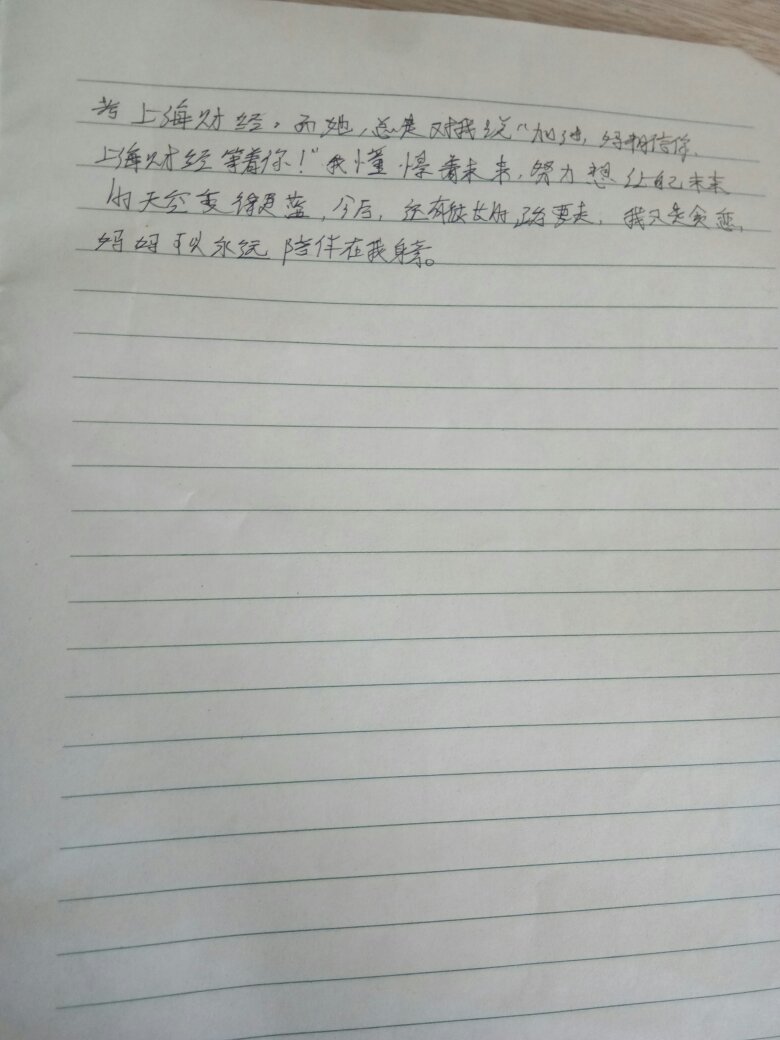 考上海财经。而她,总是对我说“加油,妈相信你,
上海财经等着你!”我憧憬着未来,努力想让自己未来
的天空变得更蓝,今后,还有很长的路要走,我只是贪恋,
妈妈可以永远陪伴在我身旁。